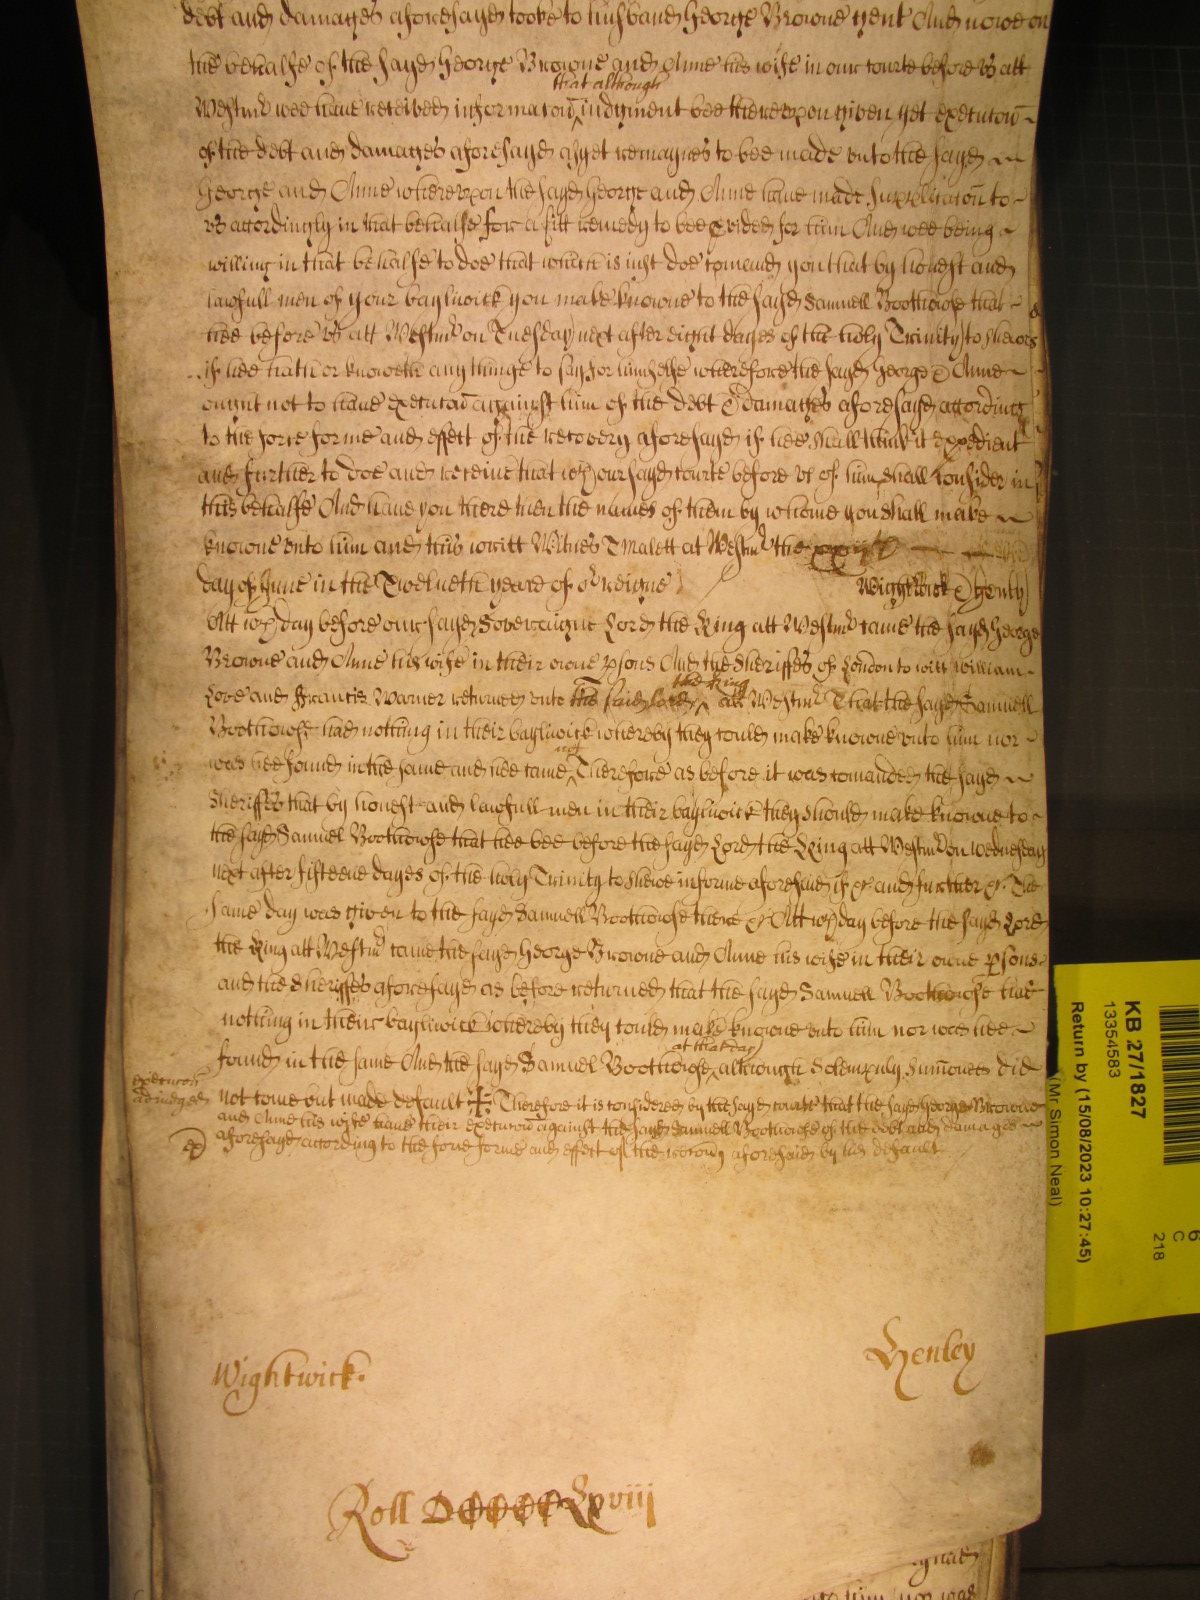 debt and damages aforesayd tooke to husband George Browne gent And nowe on
the behalfe of the sayd George Browne and Anne his wife in our courte before us att
that although
Westmr wee have received informacon judgment bee thereupon given yet execucon
of the debt and damages aforesayd as yet remaynes to bee made unto the sayd
George and Anne whereupon the sayd George and Anne have made supplicacon to
us accordingly in that behalfe for a fitt remedy to bee pvided for him And wee being
willing in that behalfe to doe that which is just doe comend you that by honest and
lawfull men of your baylwick you make knowne to the sayd Samuell Boothowse that
hee before us att Westmr on Tuesday next after eight dayes of the holy Trinity to shewe
if hee hath or knoweth any thinge to say for himselfe wherefore the sayd George & Anne
ought not to have execucon against him of the debt & damages aforesayd according
to the force forme and effect of the recovery aforesayd if hee shall think it expedient
and further to doe and receive that wch our sayd courte before us of him shall consider in
this behalfe And have you there then the names of them by whome you shall make
knowne unto him and this writt Witnes T Malett at Westmr the xxiith
day of June in the Twelueth yeare of or reigne
Wightwick & Henley
Att wch day before our sayd Soveraigne Lord the King att Westmr came the sayd George
Browne and Anne his wife in their owne psons And the Sheriffes of London to witt William
the King
Love and Francis Warner returned unto the said Lord att Westmr That the sayd Samuell
Boothowse had nothing in their baylwick whereby they could make knowne unto him nor
not
was hee found in the same and hee came Therefore as before it was comanded the sayd
Sheriffes that by honest and lawfull men in their baylwick they should make knowne to
the sayd Samuel Boothowse that hee bee before the sayd Lord the King att Westmr on wednesday
next after fifteene dayes of the holy Trinity to shewe in forme aforesaid if &c and further &c The
same day was given to the sayd Samuell Boothowse there &c Att wch day before the sayd Lord
the King att Westmr came the sayd George Browne and Anne his wife in their owne psons
and the Sheriffes aforesayd as before returned that the sayd Samuell Boothowse had
nothing in their baylwick whereby they could make knowne unto him nor was hee
at that day
found in the same And the sayd Samuel Boothowse although Solempnly Sumoned did
execucon
adiudged
not come but made default Therefore it is considered by the sayd courte that the sayd George Browne
and Anne his wife have their execucon against the sayd Samuell Boothowse of the debt and damages
aforesayd according to the force forme and effect of the recovry aforesaid by his default
Wightwick.
Henley
Roll DCCCCLxviij
KB 27/1827
13354583
Return by (15/08/2023 10:27:45)
(Mr Simon Neal)
6
C
218